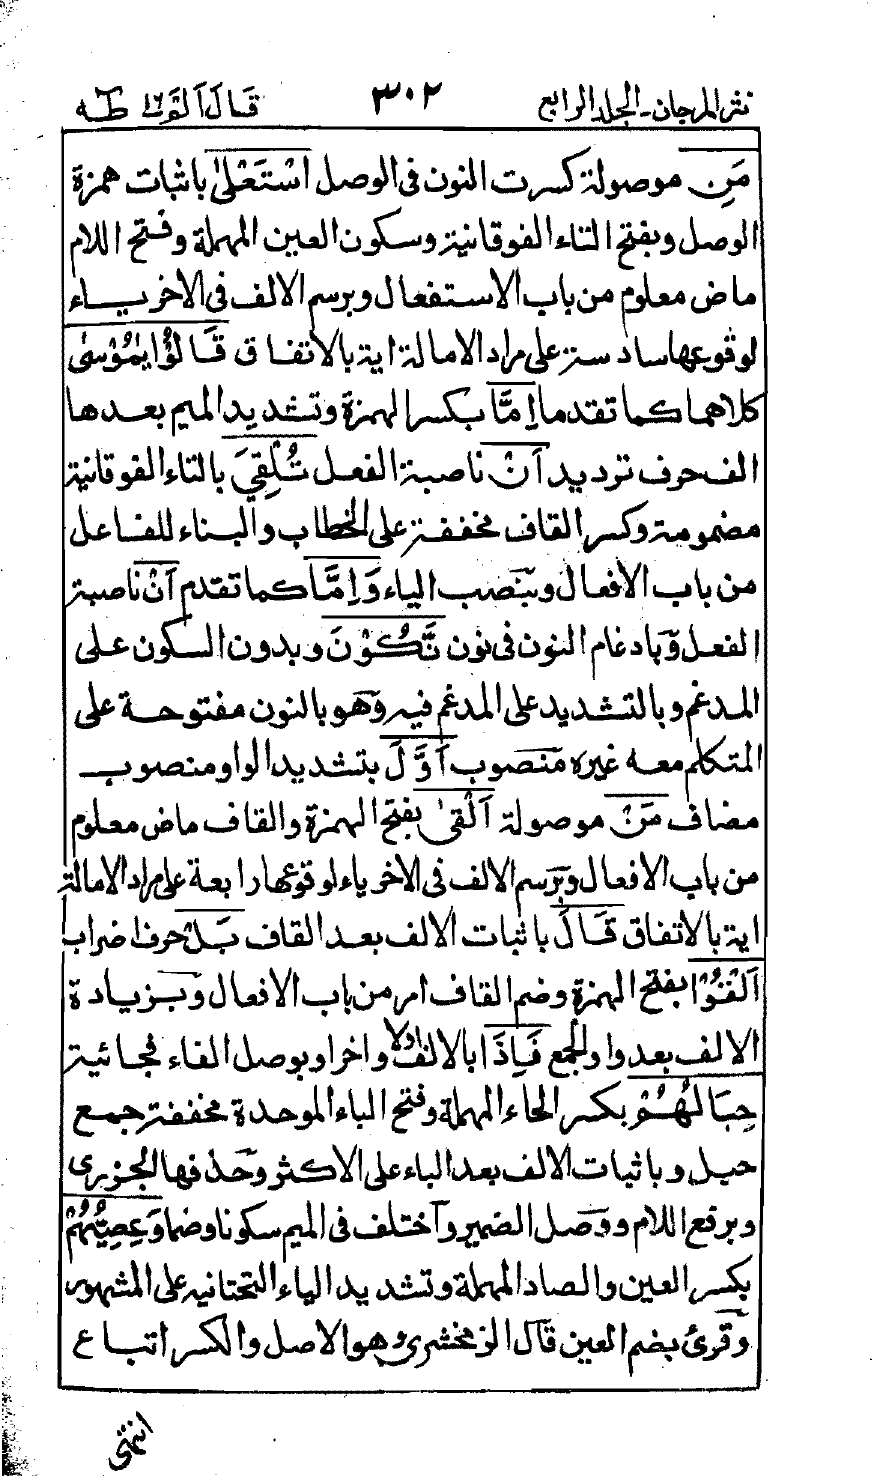 نثر المرجان۔الجلد الرابع ٣٠٢ قَالَ اَلَمْ ١٦ طٰهٰ
مَنِ موصولة كسرت النون فى الوصل اسْتَعْلٰى باثبات همزة
الوصل وبفتح التاء الفوقانية وسكون العين المهملة وفتح اللام
ماض معلوم من باب الاستفعال وبرسم الالف فى الاخر ياء
لوقوعها سادسة على مراد الامالة اية بالاتفاق قَالُوْا يٰمُوْسٰى
كلاهما كما تقدما اِمَّا بكسر الهمزة وتشديد الميم بعدها
الف حرف ترديد اَنْ ناصبة الفعل تُلْقِيَ بالتاء الفوقانية
مضمومة وكسر القاف مخففة على الخطاب والبناء للفاعل
من باب الافعال وبنصب الياء وَاِمَّا كما تقدم اَنْ ناصبة
الفعل وبادغام النون فى نون نَّكُوْنَ وبدون السكون على
المدغم وبالتشديد على المدغم فيه وهو بالنون مفتوحة على
المتكلم معه غيره منصوب اَوَّلَ بتشديد الواو منصوب
مضاف مَنْ موصولة اَلْقٰى بفتح الهمزة والقاف ماض معلوم
من باب الافعال وبرسم الالف فى الاخر ياء لوقوعها رابعة على مراد الامالة
اية بالاتفاق قَالَ باثبات الالف بعد القاف بَلْ حرف اضراب
اَلْقُوْا بفتح الهمزة وضم القاف امر من باب الافعال وبزيادة
الالف بعد واو الجمع فَاِذَا بالالف اولا واخرا وبوصل الفاء فجائية
حِبَالُهُمْ بكسر الحاء المهملة وفتح الباء الموحدة مخففة جمع
حبل وباثبات الالف بعد الباء على الاكثر وحذفها الجزرى
وبرفع اللام ووصل الضمير واختلف فى الميم سكونا وضما وَعِصِيُّهُمْ
بكسر العين والصاد المهملة وتشديد الياء التحتانيه على المشهور
وقرئ بضم العين قال الزمخشرى وهو الاصل والكسر اتباع
انتهى